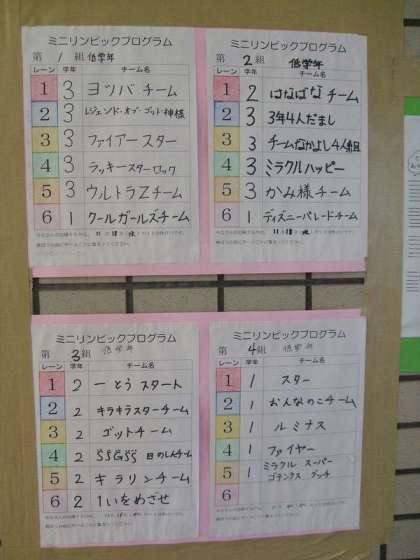 ミニリンピックプログラム
第 1 組 低学年
レーン 学年 チーム名
1 3 ヨツバチーム
2 3 レジェンド・オブ・ゴッド・神様
3 3 ファイアースター
4 3 ラッキースターロック
5 3 ウルトラZチーム
6 1 クールガールズチーム
ミニリンピックプログラム
第 2 組 低学年
レーン 学年 チーム名
1 2 はなばなチーム
2 3 3年4人だまし
3 3 チームなかよし4人
4 3 ミラクルハッピー
5 3 かみ様チーム
6 1 ディズニーパレードチーム
ミニリンピックプログラム
第 3 組 低学年
レーン 学年 チーム名
1 2 一とうスタート
2 2 キラキラスターチーム
3 2 ゴットチーム
4 2 日のしんチーム
5 2 キラリンチーム
6 2 1いをめざせ
ミニリンピックプログラム
第 4 組 低学年
レーン 学年 チーム名
1 1 スター
2 1 おんなのこチーム
3 1 ルミナス
4 1 ファイヤー
5 1 ミラクル スーパー
ゴテンクス デッチ
6